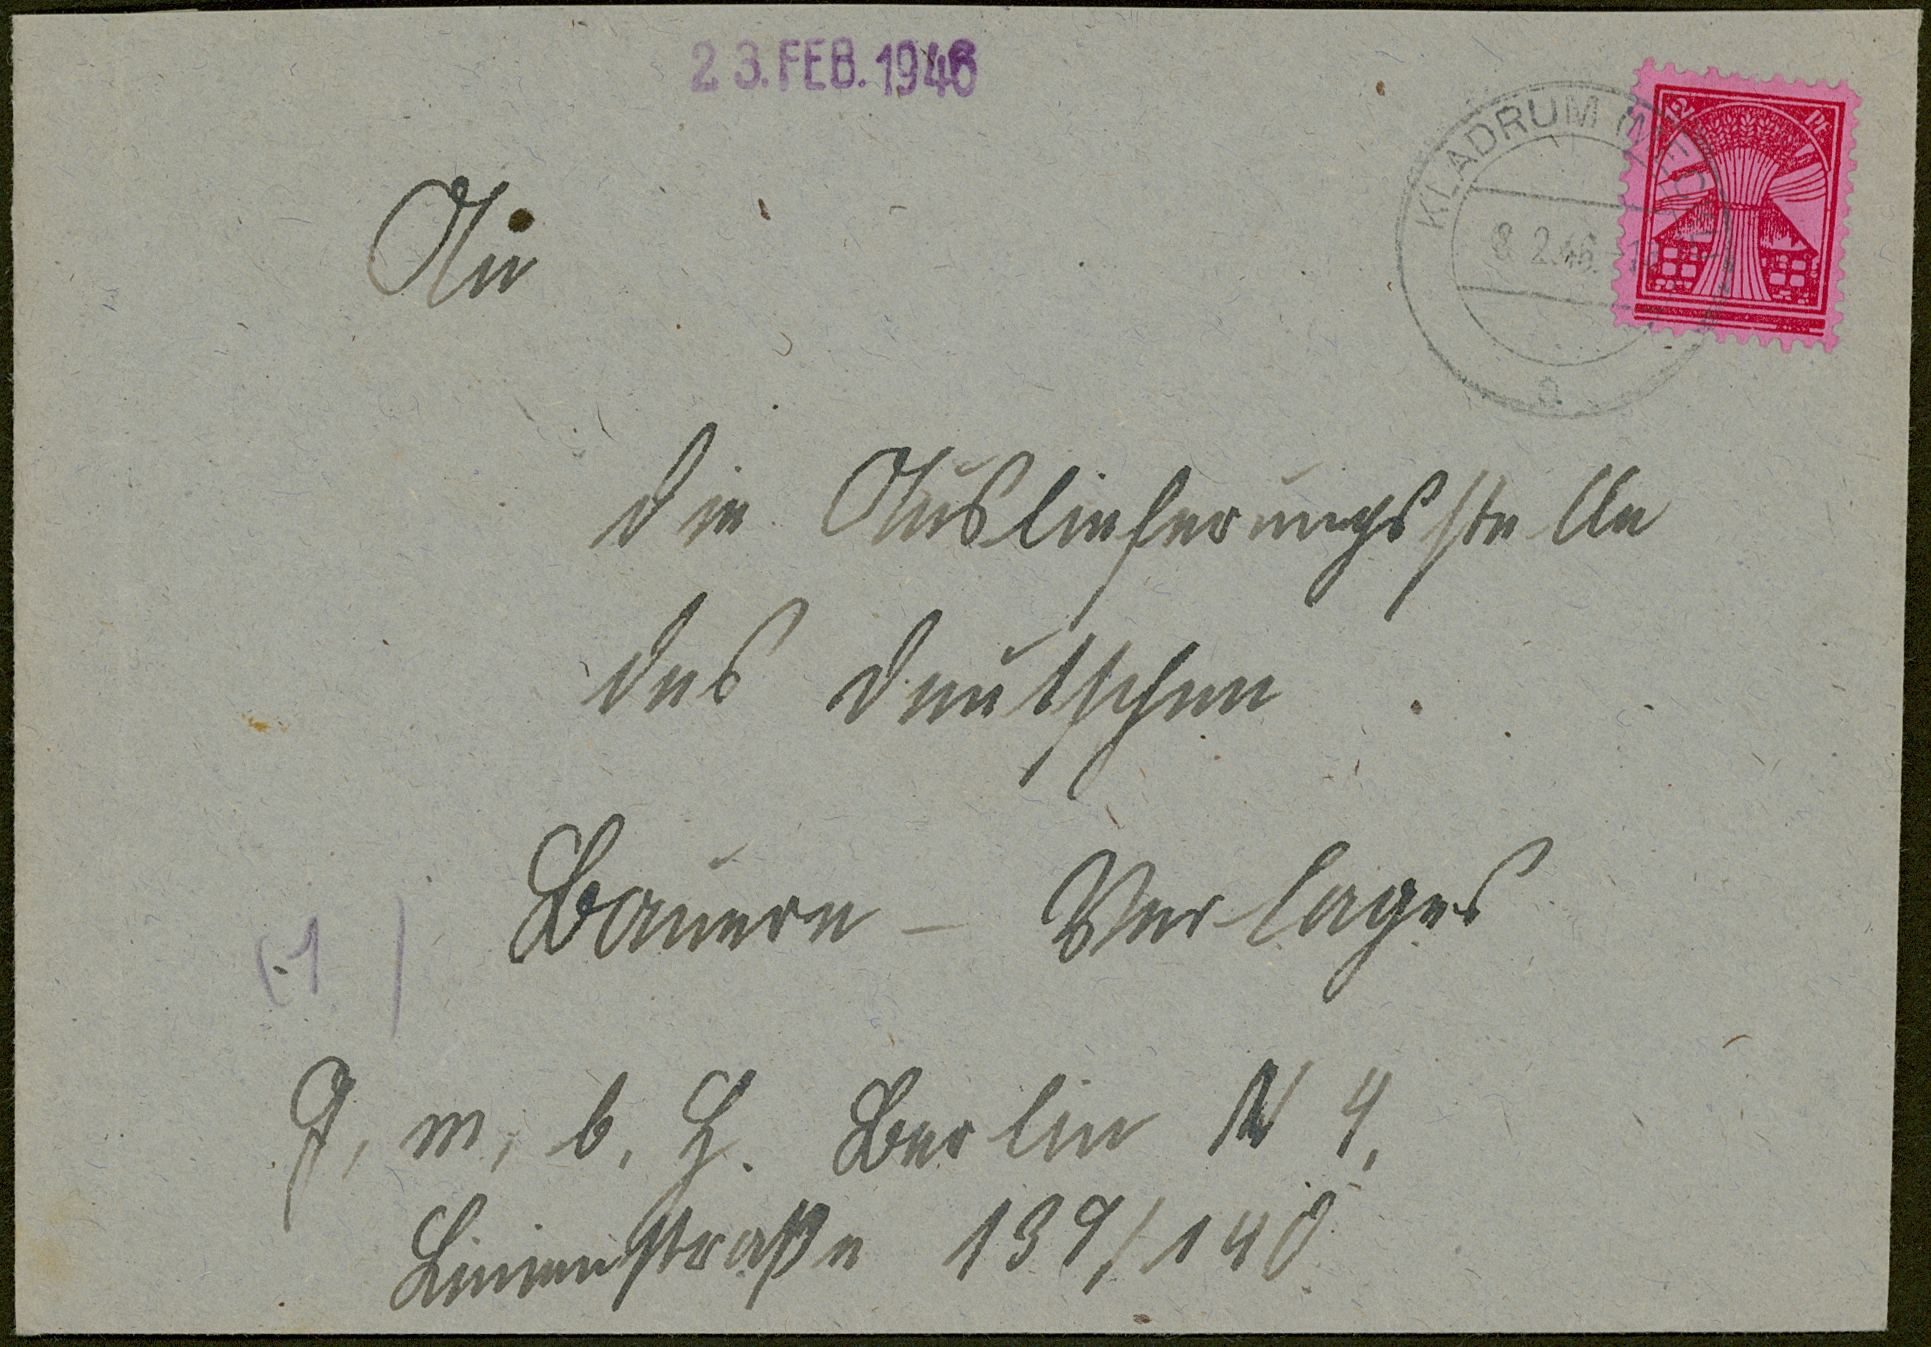 23. FEB. 1946
KLADRUM (MECKL)
8. 2.46.
a
An
die Auslieferungsstelle
des deutschen
Bauern – Verlages
G, m, b, H. Berlin N 4,
Linienstraße 139/140